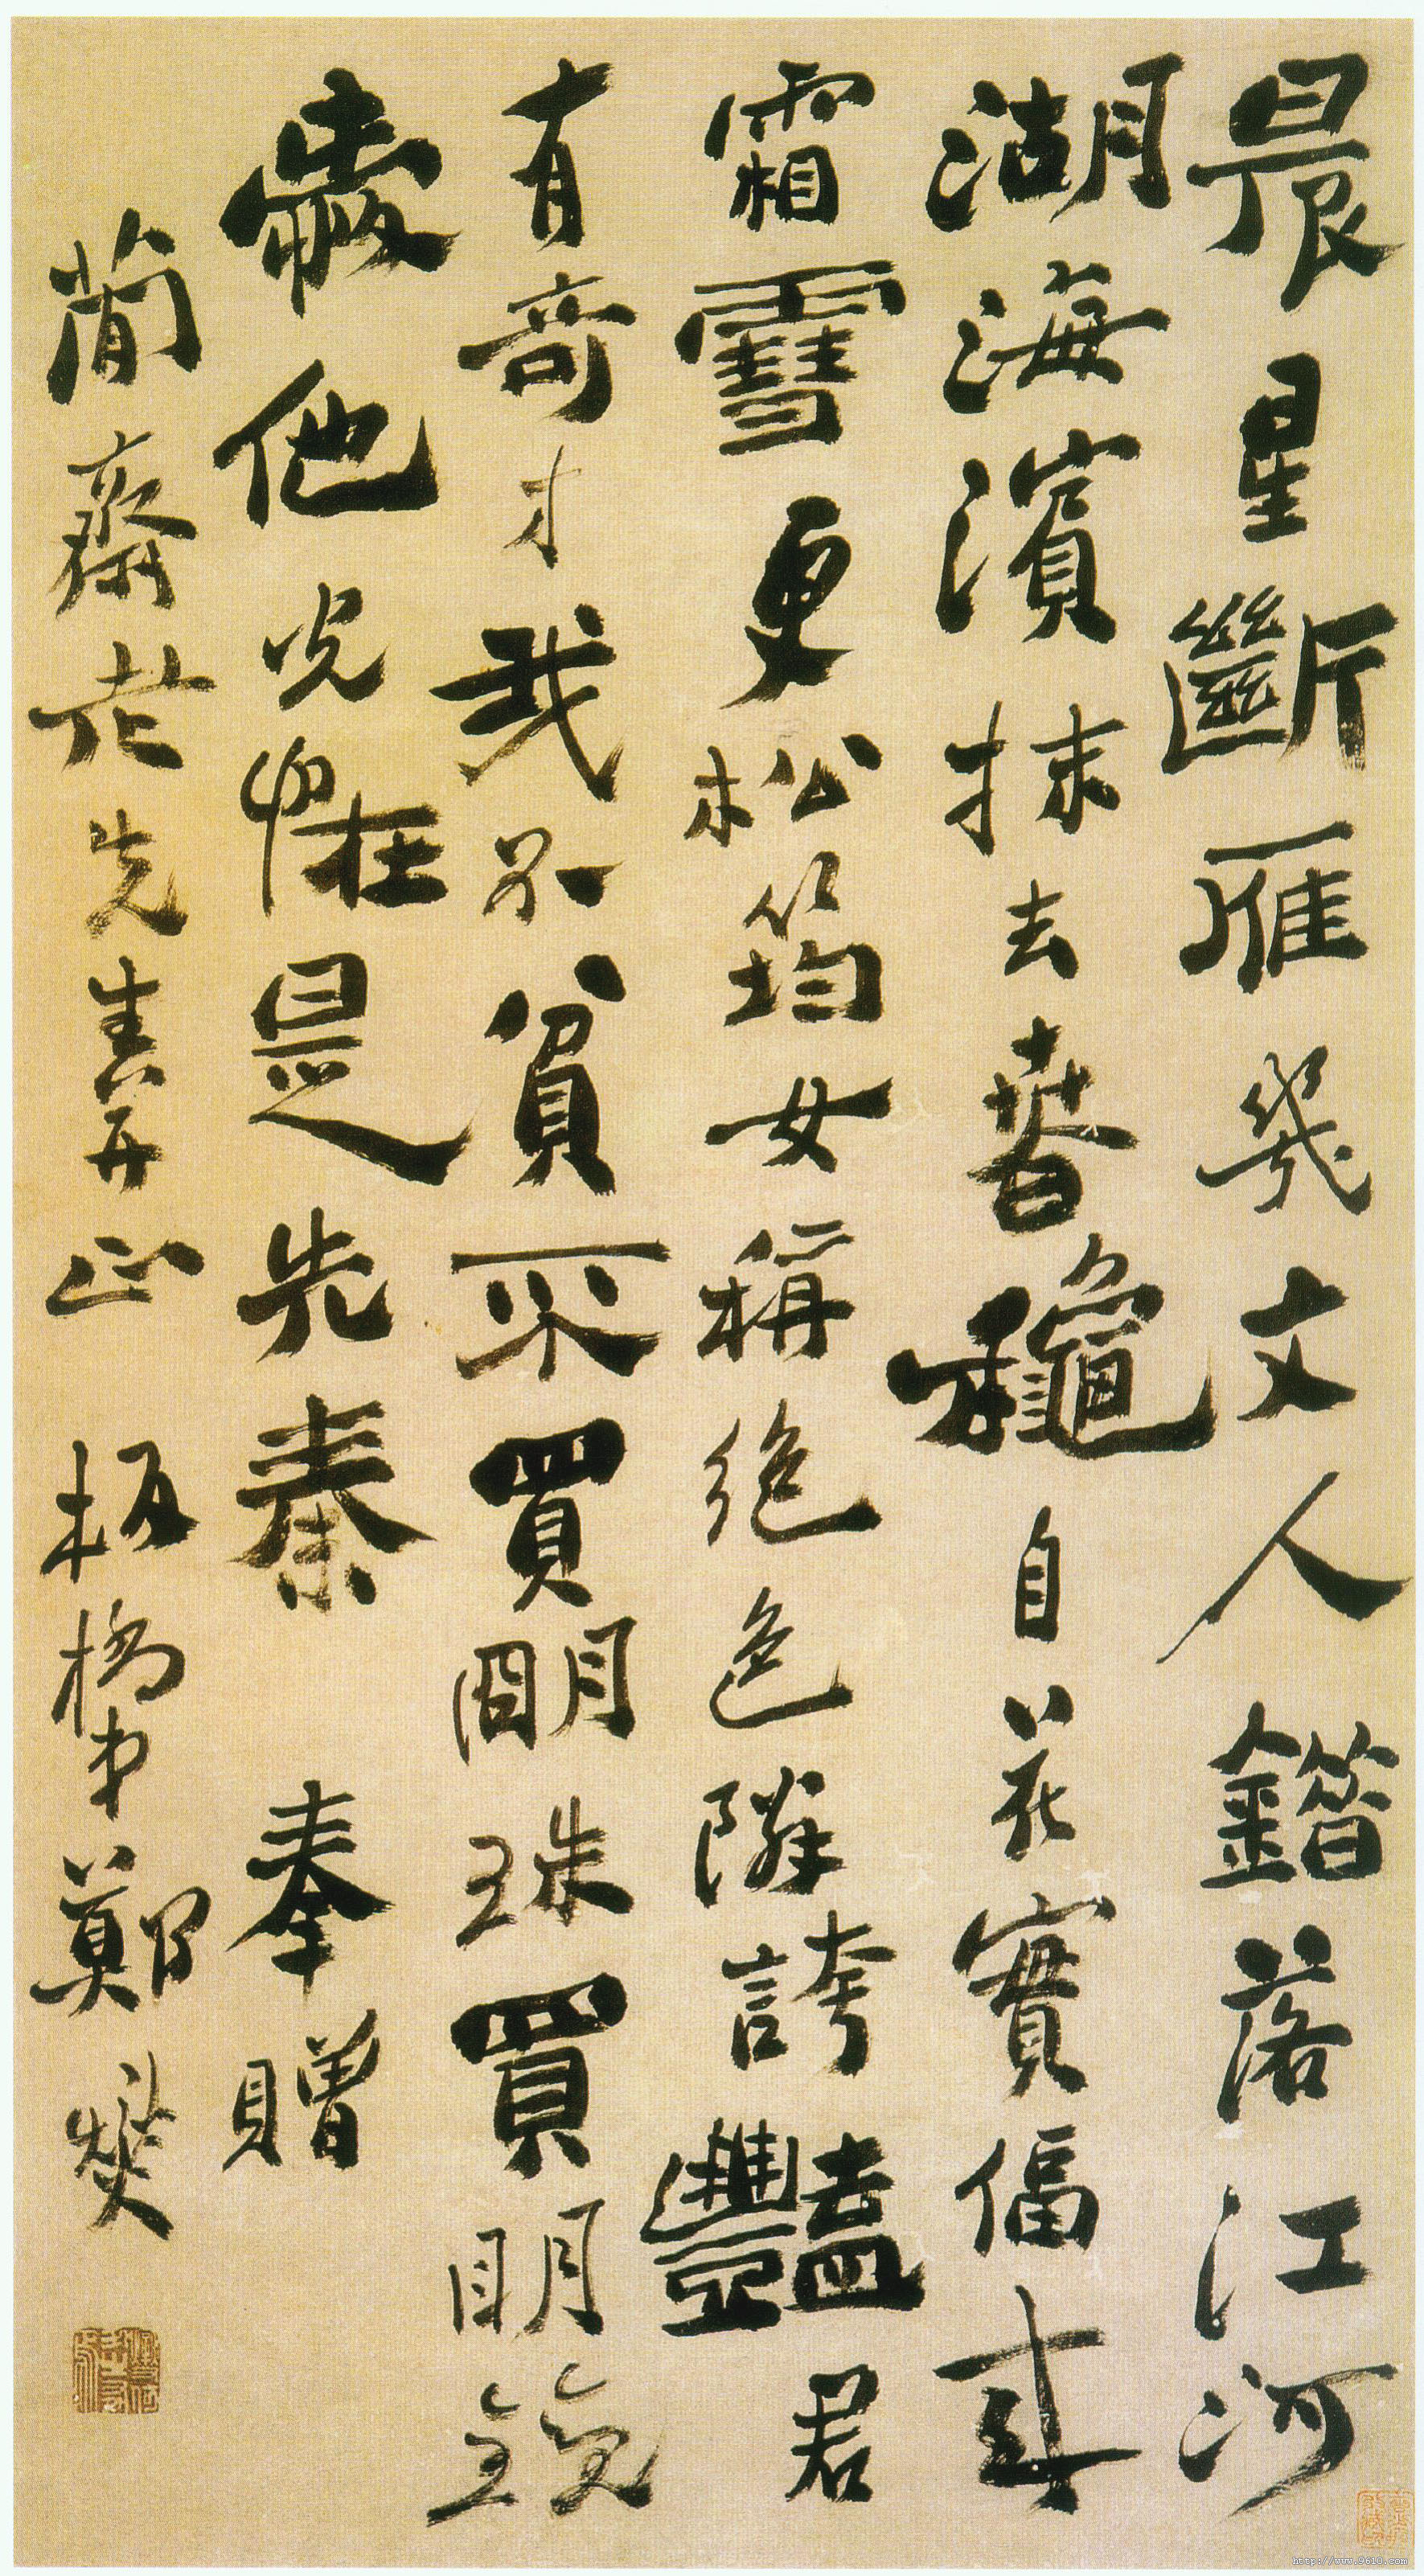 晨星斷雁幾文人錯落江河
湖海濱抹去春龝自花實偪來
霜雪更松筠女稱絕色隣誇豔君
有奇才我不貧不買朙珠買明鏡
愛他光怪是先秦 奉贈
簡齋老先生正 板橋弟鄭燮
http://www.9610.com